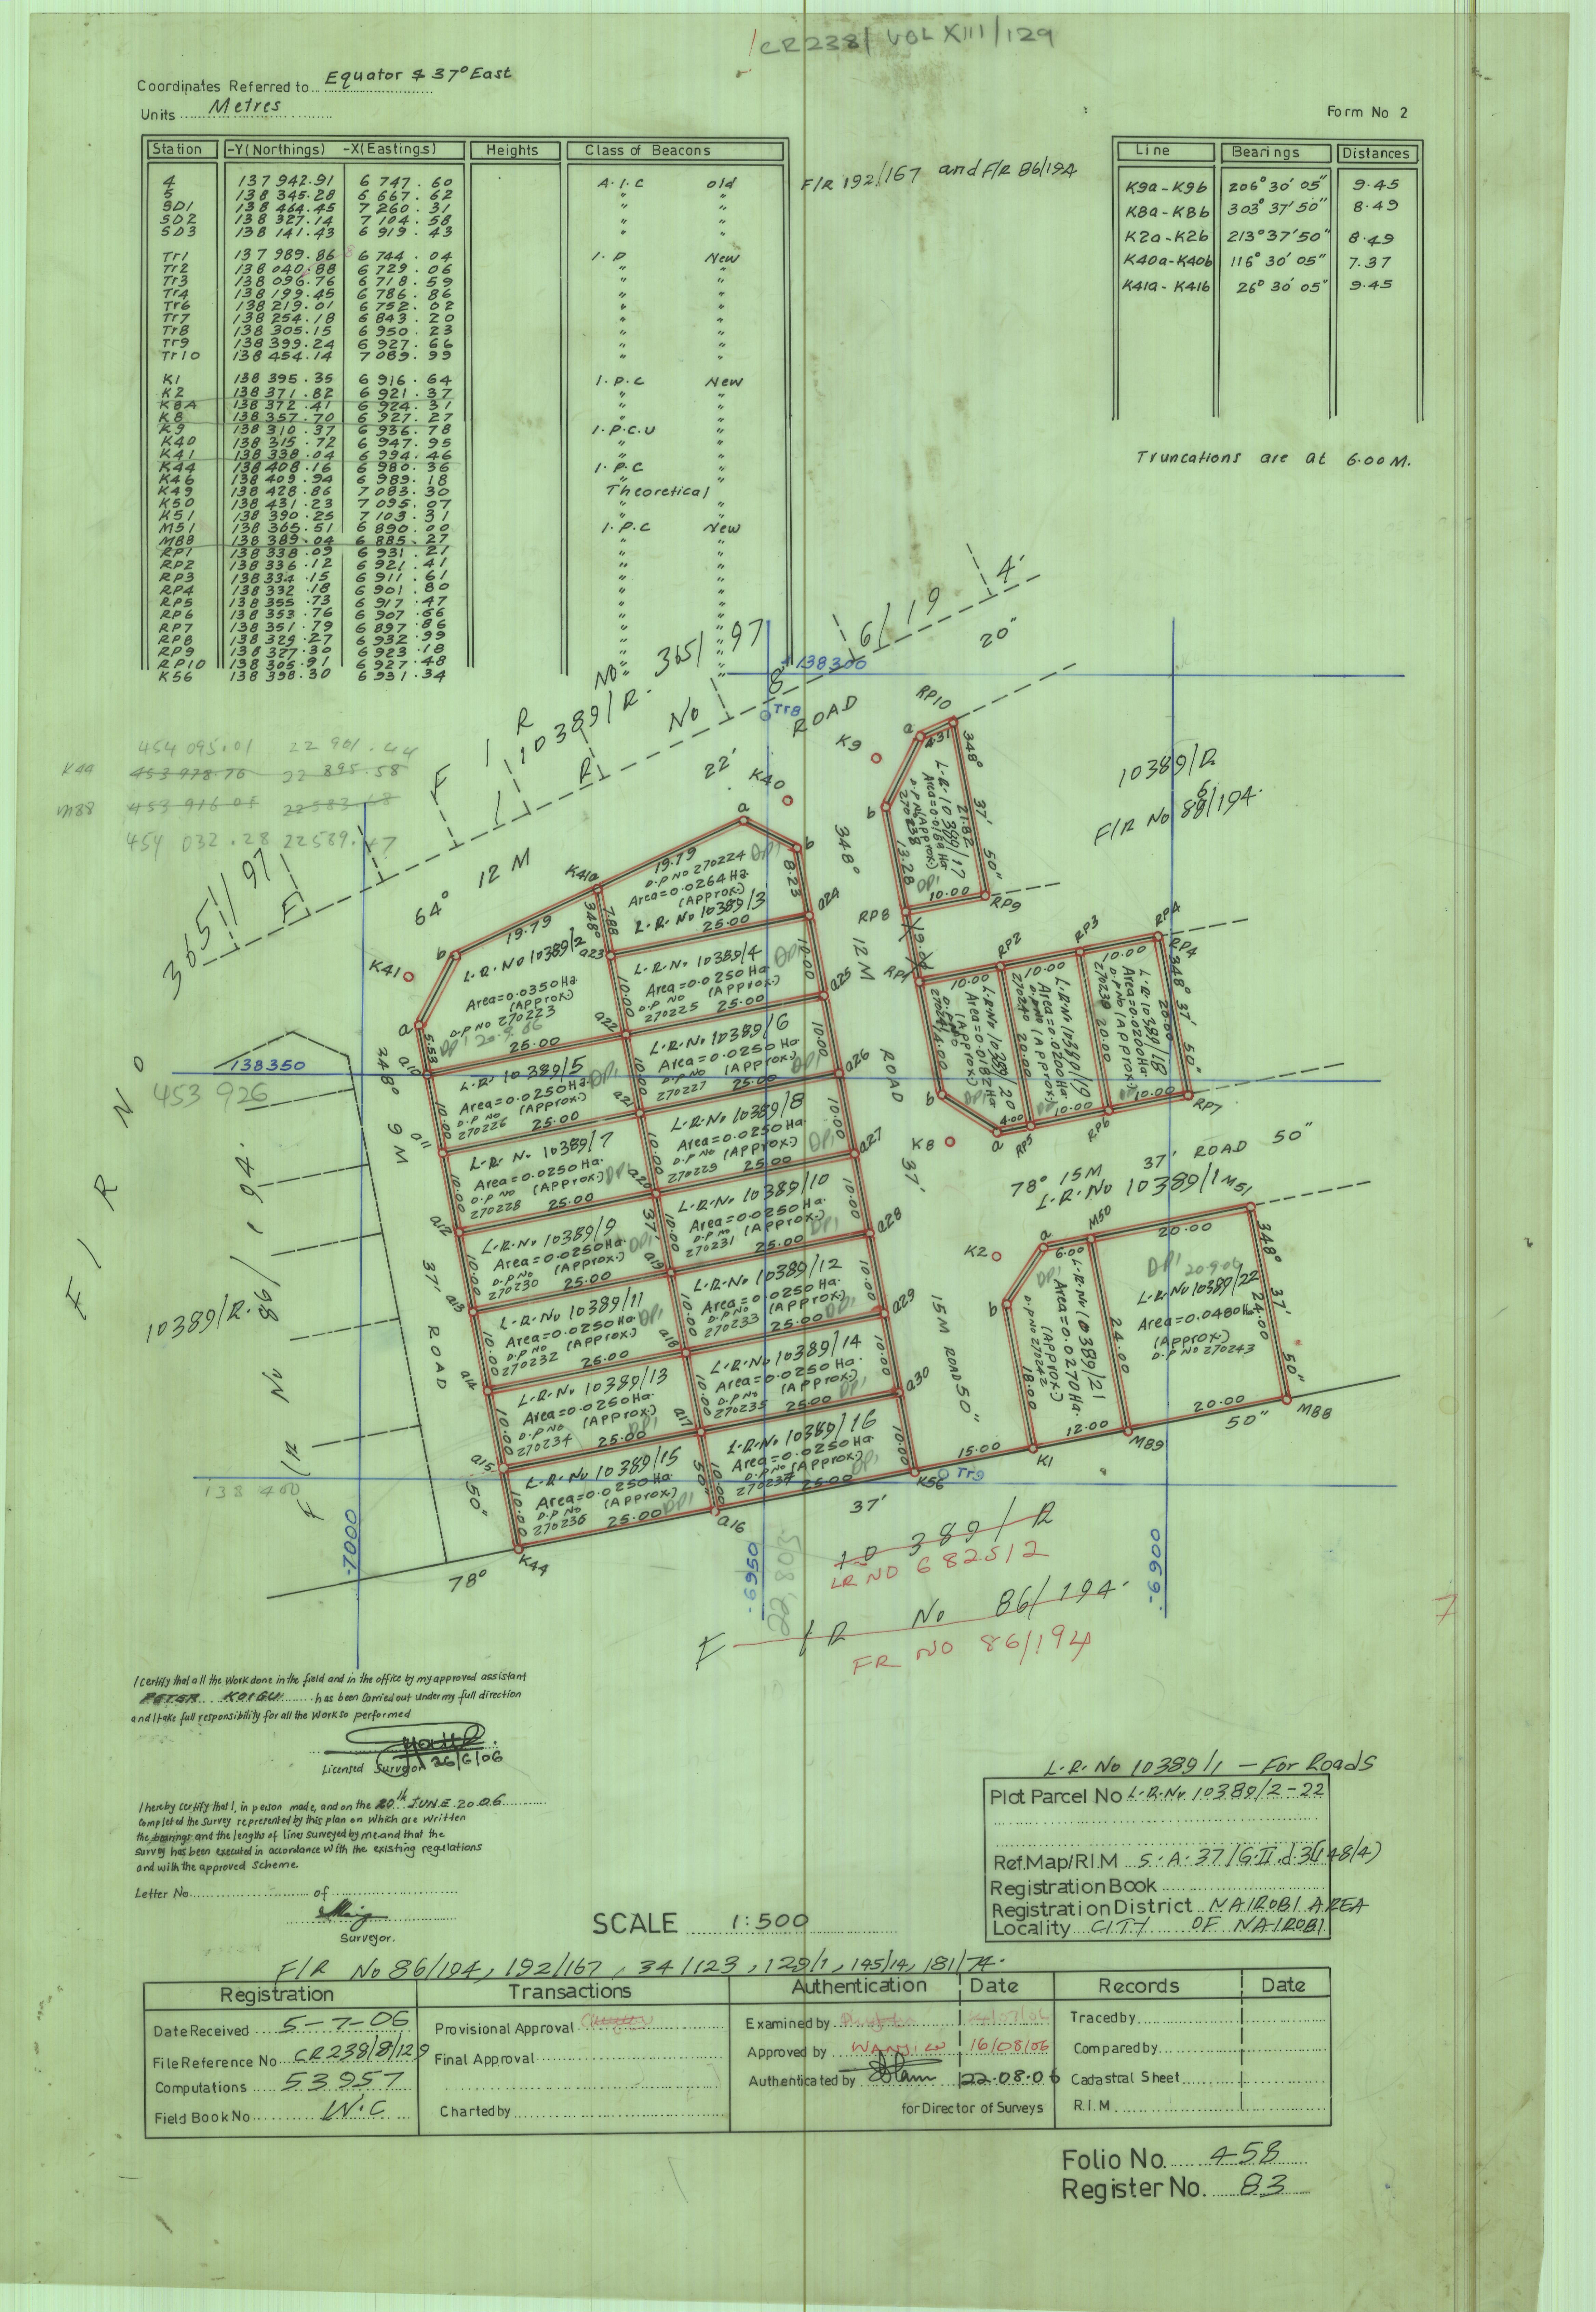 CR238/ VOL XIII/129
Coordinates Referred to... Equator & 37° East
Units Metres
Form No 2
Station -Y(Northings) -X(Eastings) Heights Class of Beacons
4 137 942.91 6 747.60 A.I.C old
5 138 345.28 6 667.62 " "
SD1 138 464.45 7 260.31 " "
SD2 138 327.14 7 104.58 " "
SD3 138 141.43 6 919.43 " "
Tr1 137 989.86 6 744.04 I.P New
Tr2 138 040.88 6 729.06 " "
Tr3 138 096.76 6 718.59 " "
Tr4 138 199.45 6 786.86 " "
Tr6 138 219.01 6 752.02 " "
Tr7 138 254.18 6 843.20 " "
Tr8 138 305.15 6 950.23 " "
Tr9 138 399.24 6 927.66 " "
Tr10 138 454.14 7 089.99 " "
K1 138 395.35 6 916.64 I.P.C New
K2 138 371.82 6 921.37 " "
K8A 138 372.41 6 924.31 " "
K8 138 357.70 6 927.27 " "
K9 138 310.37 6 936.78 I.P.C.U "
K40 138 315.72 6 947.95 " "
K41 138 338.04 6 994.46 " "
K44 138 408.16 6 980.36 I.P.C "
K46 138 409.94 6 989.18 " "
K49 138 428.86 7 083.30 Theoretical
K50 138 431.23 7 095.07 " "
K51 138 390.25 7 103.31 " "
M51 138 365.51 6 890.00 I.P.C New
M88 138 389.04 6 885.27 " "
RP1 138 338.09 6 931.21 " "
RP2 138 336.12 6 921.41 " "
RP3 138 334.15 6 911.61 " "
RP4 138 332.18 6 901.80 " "
RP5 138 355.73 6 917.47 " "
RP6 138 353.76 6 907.66 " "
RP7 138 351.79 6 897.86 " "
RP8 138 329.27 6 932.99 " "
RP9 138 327.30 6 923.18 " "
RP10 138 305.91 6 927.48 " "
K56 138 398.30 6 931.34 " "
F/R 192/167 and F/R 86/194
Line Bearings Distances
K9a-K9b 206° 30' 05" 9.45
K8a-K8b 303° 37' 50" 8.49
K2a-K2b 213° 37' 50" 8.49
K40a-K40b 116° 30' 05" 7.37
K41a-K41b 26° 30' 05" 9.45
Truncations are at 6.00 M.
454 095.01 22 901.44
K44 453 978.76 22 895.58
M88
454 032.28 22589.
F I R No 365/97
10389/R.
F I R No 86/194
10389/R.
F I R No 6/19
138300
Tr8
64° 12 M 22' 20"
ROAD
K9
K40
K41
K8
K2
10389/R
F/R No 86/194.
RP10
a 4.31
348° 37' 50"
21.82
L.R. 10389/17
Area=0.0188 Ha
(Approx)
D.P No
270238
13.28
b
10.00
RP9
RP8
9.00
RP1 RP2 RP3 RP4
10.00 10.00 10.00
348° 37' 50"
L.R. 10389/18
Area=0.0200Ha
D.P No (Approx)
270239 20.00
L.R.No 10389/19
Area=0.0200Ha
D.P No (Approx)
270240 20.00
L.R.No 10389/20
Area=0.0182 Ha
(Approx)
270241
14.00
b 4.00 10.00 10.00
a RP5 RP6 RP7
348° 12 M ROAD 37'
15M ROAD 50"
78° 15M 37' ROAD 50"
L.R.No 10389/1
M51
M50
20.00
a 6.00
b
L.R.No 10389/21
Area=0.0270Ha.
(Approx)
D.P No 270242
18.00
24.00
DP1 20.9.06
L.R.No 10389/22
Area=0.0480Ha
(Approx)
D.P No 270243
348° 37' 24.00 50"
20.00
M88
M89
12.00
K1
15.00
K56
Tr9
50"
K41a
a
b
19.79
D.P No 270224 DP1
Area=0.0264 Ha.
(Approx)
L.R. No 10389/3
8.23
25.00
a24
19.79
7.88
348°
L.R.No 10389/2
Area=0.0350Ha.
(Approx)
D.P No 270223
DP1 20.9.06
b
a
5.53
25.00
a10
a23
L.R.No 10389/4
Area=0.0250 Ha.
D.P No (Approx)
270225 25.00
10.00
a25
a22
L.R. 10389/5
Area=0.0250Ha.
D.P No (Approx)
270226 25.00
10.00
a11
L.R.No 10389/6
Area=0.0250 Ha
D.P No (Approx)
270227 25.00
10.00
a26
a21
L.R. No 10389/7
Area=0.0250Ha.
D.P No (Approx)
270228 25.00
10.00
a12
L.R.No 10389/8
Area=0.0250 Ha
D.P No (Approx)
270229 25.00
10.00
a27
a20
L.R.No 10389/9
Area=0.0250Ha.
D.P No (Approx)
270230 25.00
10.00
a13
L.R.No 10389/10
Area=0.0250Ha.
D.P No (Approx)
270231 25.00
10.00
a28
a19
L.R.No 10389/11
Area=0.0250Ha.
D.P No (Approx)
270232 25.00
10.00
a14
L.R.No 10389/12
Area=0.0250Ha.
D.P No (Approx)
270233 25.00
10.00
a29
a18
L.R.No 10389/13
Area=0.0250Ha.
D.P No (Approx)
270234 25.00
10.00
a15
L.R.No 10389/14
Area=0.0250Ha.
D.P No (Approx)
270235 25.00
10.00
a30
a17
L.R.No 10389/15
Area=0.0250Ha.
D.P No (Approx)
270236 25.00
10.00
K44
L.R.No 10389/16
Area=0.0250Ha.
D.P No (Approx)
270237 25.00
10.00
a16
348° 9 M 37' ROAD 50"
78° 37'
138350
453 926
138 400
-7000
-6950
-6900
10389/R
LR NO 6825/2
F I R No 86/194.
FR NO 86/194
I certify that all the work done in the field and in the office by my approved assistant
PETER KOIGU has been carried out under my full direction
and I take full responsibility for all the work so performed
26/6/06
Licensed Surveyor
I hereby certify that I, in person made, and on the 20th JUNE 2006
completed the survey represented by this plan on which are written
the bearings and the lengths of lines surveyed by me and that the
survey has been executed in accordance with the existing regulations
and with the approved scheme.
Letter No. of
Surveyor.
SCALE 1:500
L.R. No 10389/1 — For Roads
Plot Parcel No L.R.No. 10389/2-22
Ref.Map/R.I.M S.A.37/G.II.d.3(148/4)
Registration Book
Registration District NAIROBI AREA
Locality CITY OF NAIROBI
F/R No 86/194, 192/167, 34/123, 129/1, 145/14, 181/74.
Registration Transactions Authentication Date Records Date
Date Received 5-7-06 Provisional Approval Examined by Traced by
File Reference No CR238/8/129 Final Approval Approved by WANJIKU 16/08/06 Compared by
Computations 53957 Authenticated by 22.08.06 Cadastral Sheet
Field Book No W.C Charted by for Director of Surveys R.I.M
Folio No. 458
Register No. 83